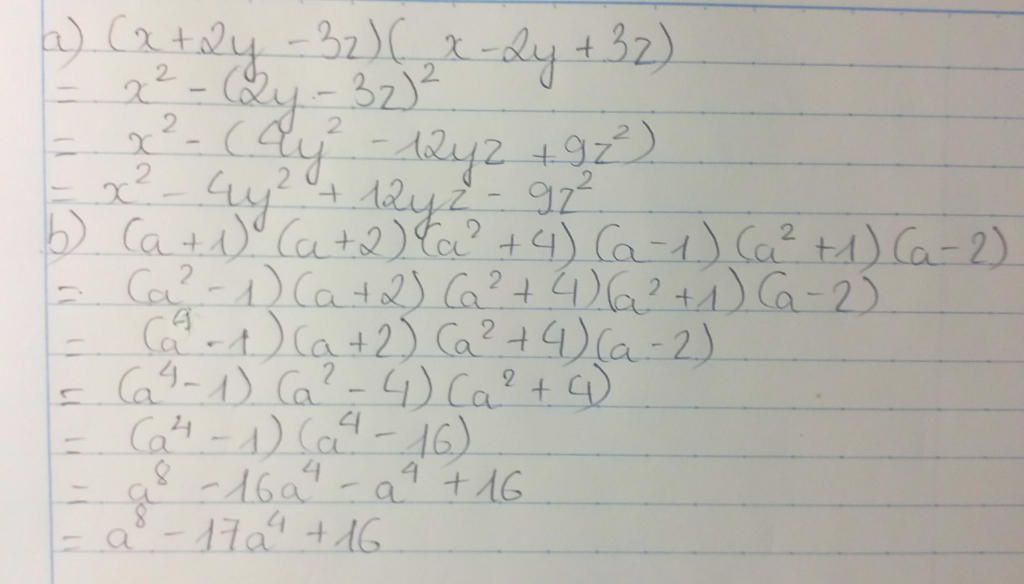 a) (x+2y-3z)( x-2y+3z)
= x² - (2y - 3z)²
= x² - (4y² - 12yz + 9z²)
= x² - 4y² + 12yz - 9z²
b) (a+1) (a+2) (a² +4) (a-1) (a² +1) (a-2)
= (a² -1) (a+2) (a² + 4)(a² +1) (a-2)
= (a⁴ -1) (a+2) (a² +4)(a-2)
= (a⁴ -1) (a² - 4) (a² + 4)
= (a⁴ -1) (a⁴ - 16)
= a⁸ - 16a⁴ - a⁴ + 16
= a⁸ - 17a⁴ + 16